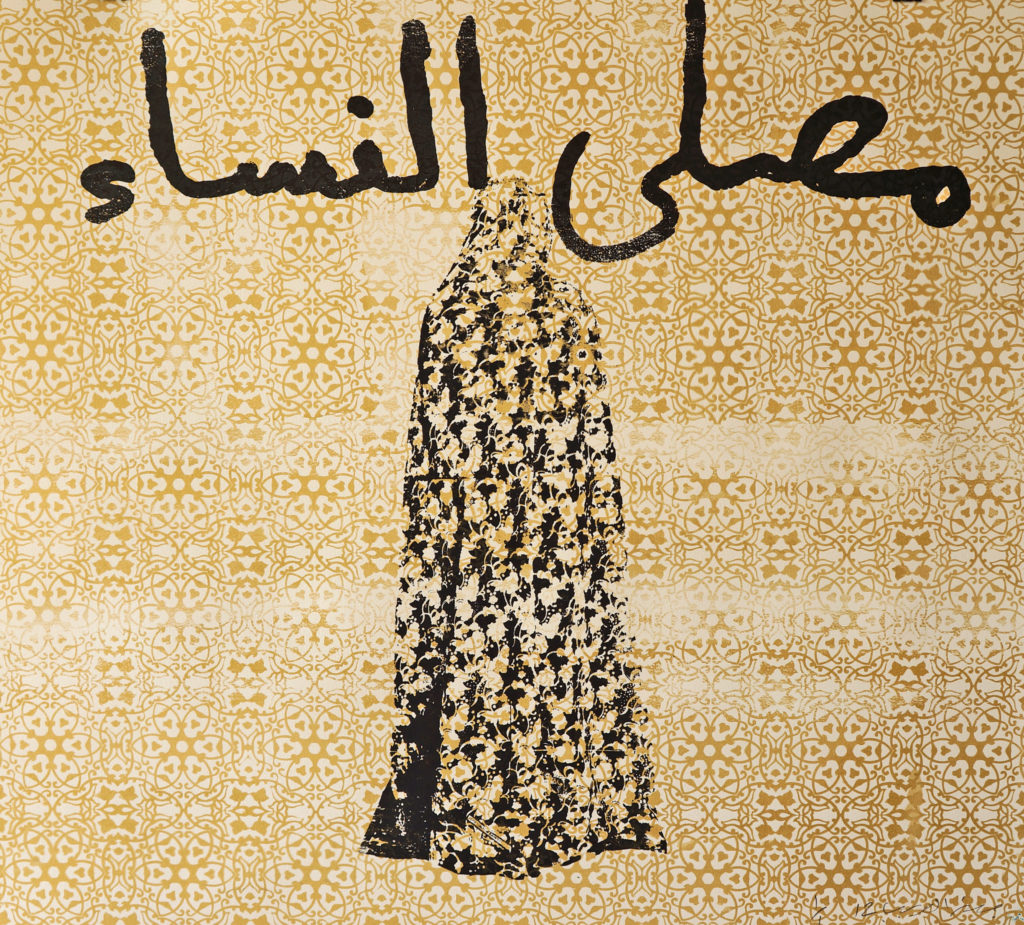 مصلى النساء